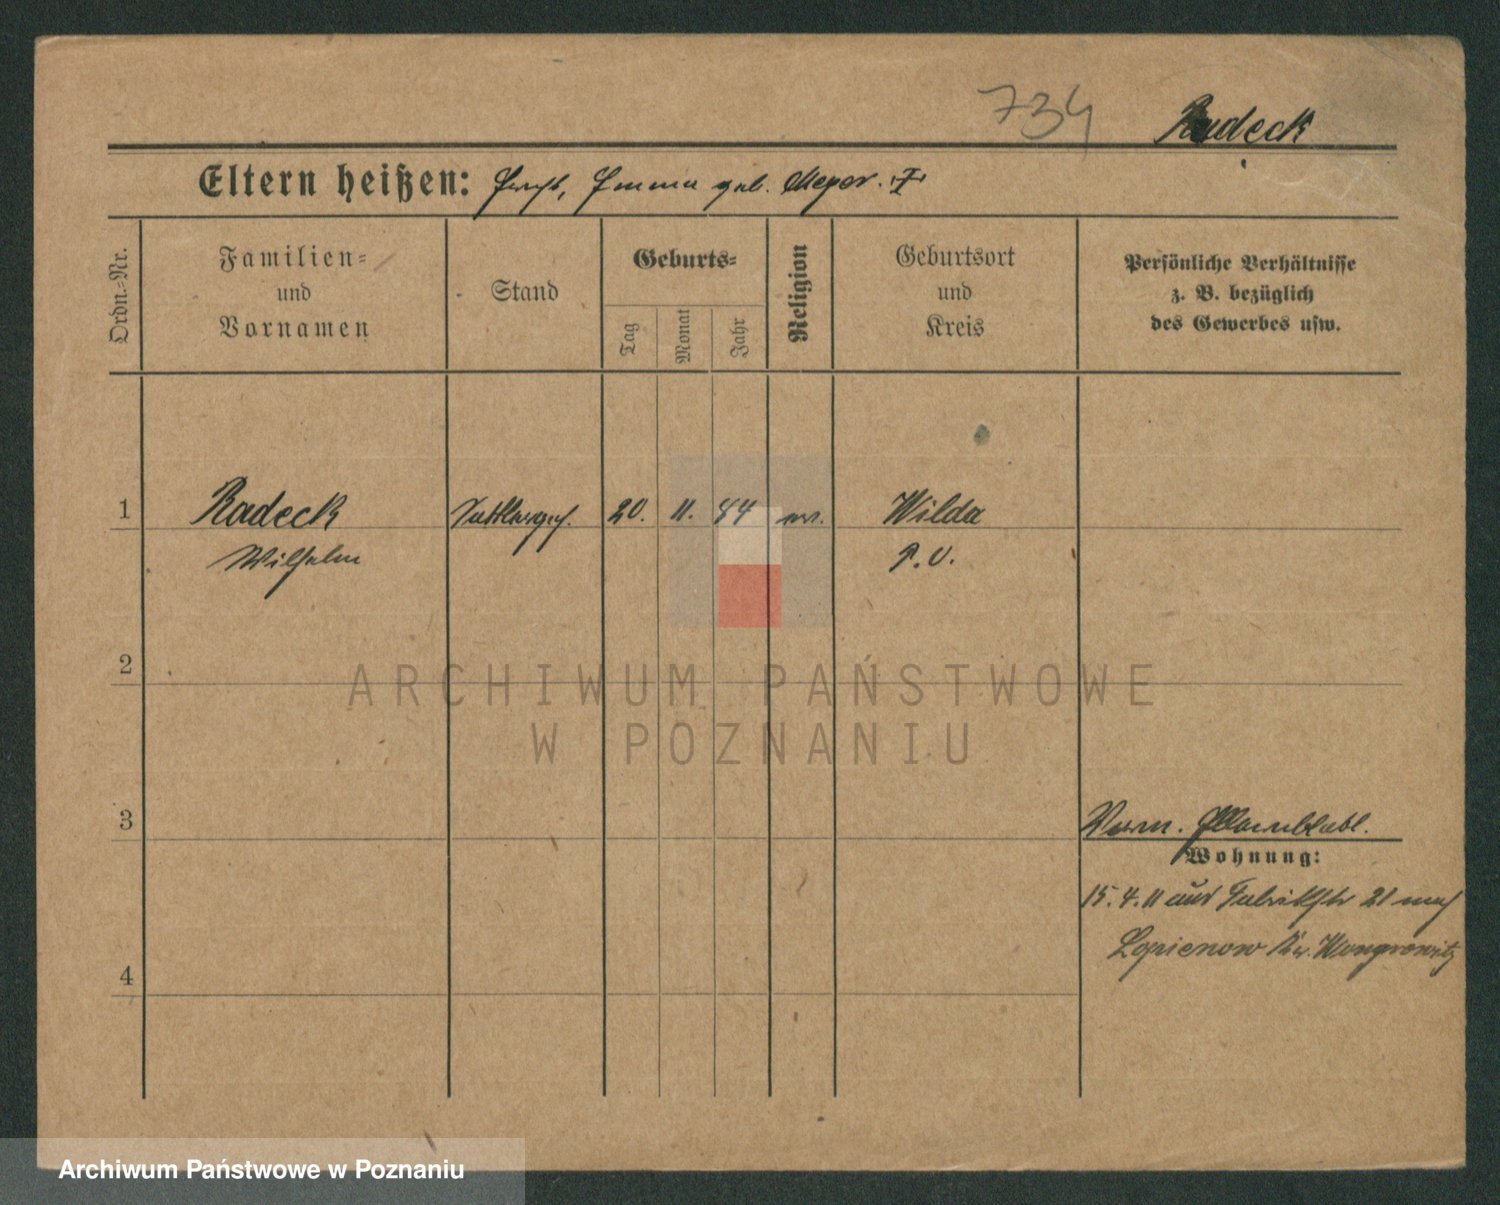 734
Radeck
Eltern heißen: Emma geb. Meyer.
Ordn.=Nr.
Familien=
und
Vornamen
Stand
Geburts=
Tag
Monat
Jahr
Religion
Geburtsort
und
Kreis
Persönliche Verhältnisse
z. B. bezüglich
des Gewerbes usw.
1 Radeck Sattlerges. 20. 11. 84 ev. Wilda
Wilhelm P. O.
2
3
Wohnung:
15. 4. 11 aus Fabrikstr 21 nach
Lopienow Kr. Wongrowitz
4
ARCHIWUM PAŃSTWOWE
W POZNANIU
Archiwum Państwowe w Poznaniu